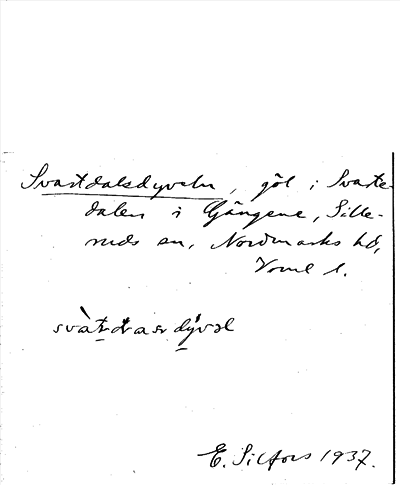 Svartdalsdyveln, göl i Svarte-
dalen i Gängene, Sille-
ruds sn, Nordmarks hd,
Vrml l.
E. Silfors 1937.